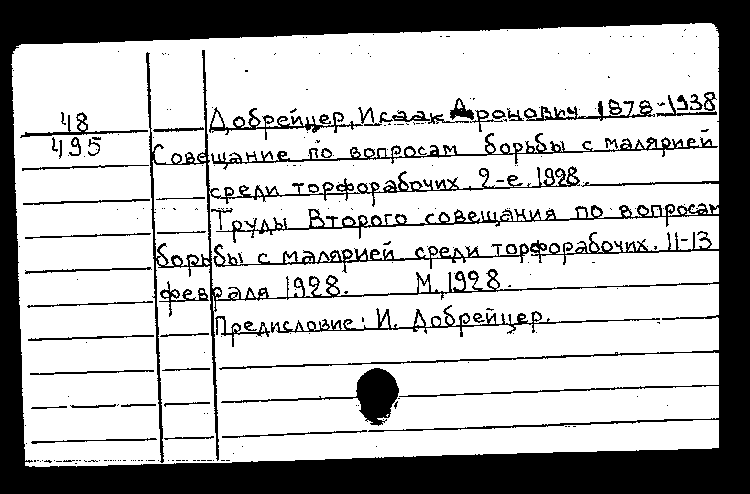 48
495
Добрейцер, Исаак Аронович 1878-1938
Совещание по вопросам борьбы с малярией
среди торфорабочих. 2-е. 1928.
Труды Второго совещания по вопросам
борьбы с малярией среди торфорабочих. 11-13
февраля 1928. М., 1928.
Предисловие: И. Добрейцер.